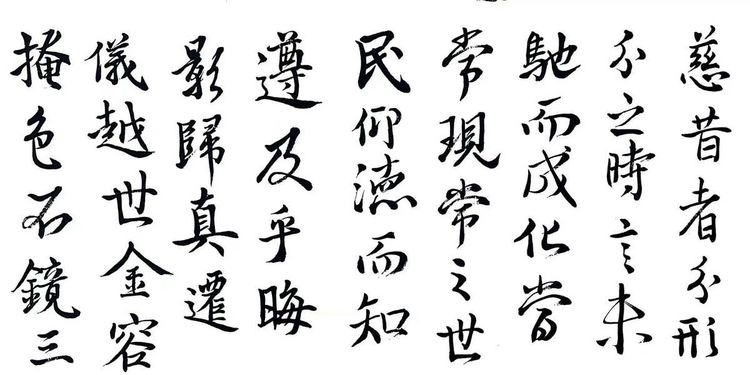 慈昔者分形
分之時言未
馳而成化當
常現常之世
民仰德而知
遵及乎晦
影歸真遷
儀越世金容
掩色不鏡三